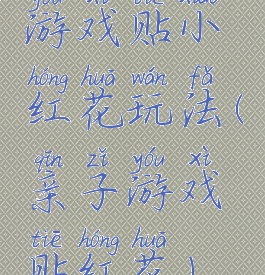 游戏贴小
hóng huā wán fǎ
红花玩法(
qīn zǐ yóu xì
亲子游戏
tiē hóng huā
贴红花)